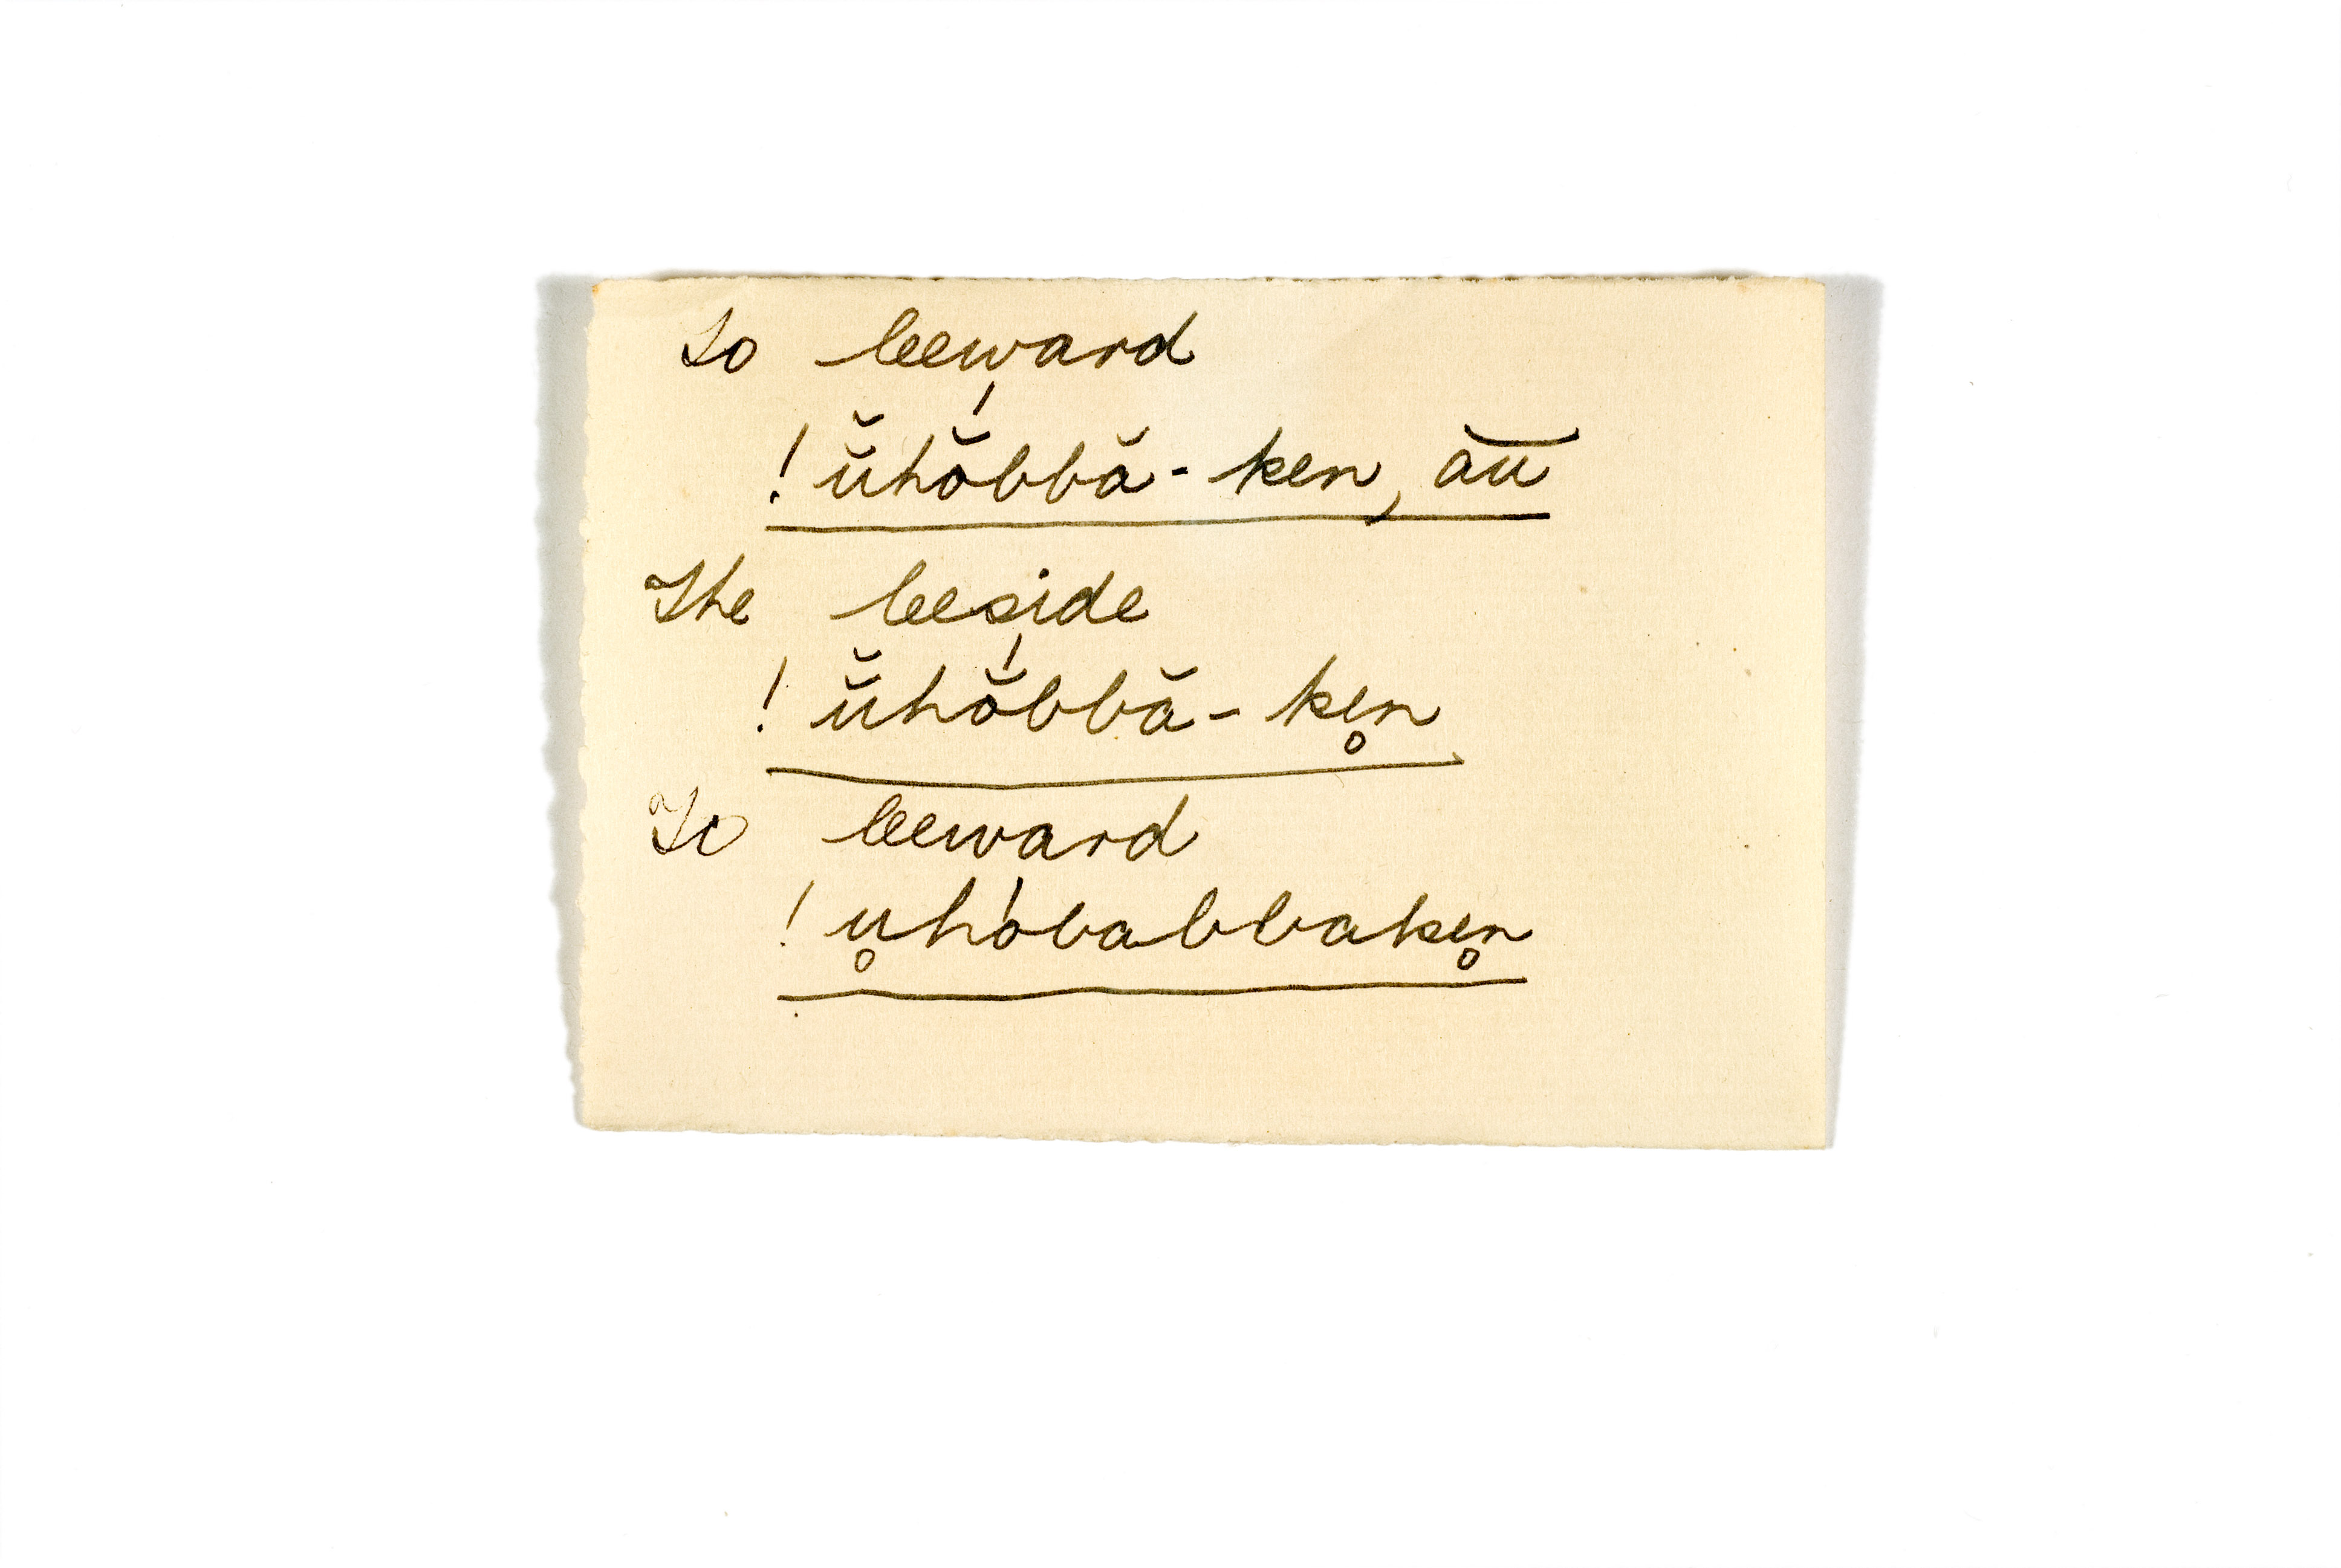 To leeward
!ŭ̆hŏ́bbă-ken, a͞u
The leeside
!ŭ̆hŏ́bbă-ke̥n
To leeward
!u̥hóbabbake̥n